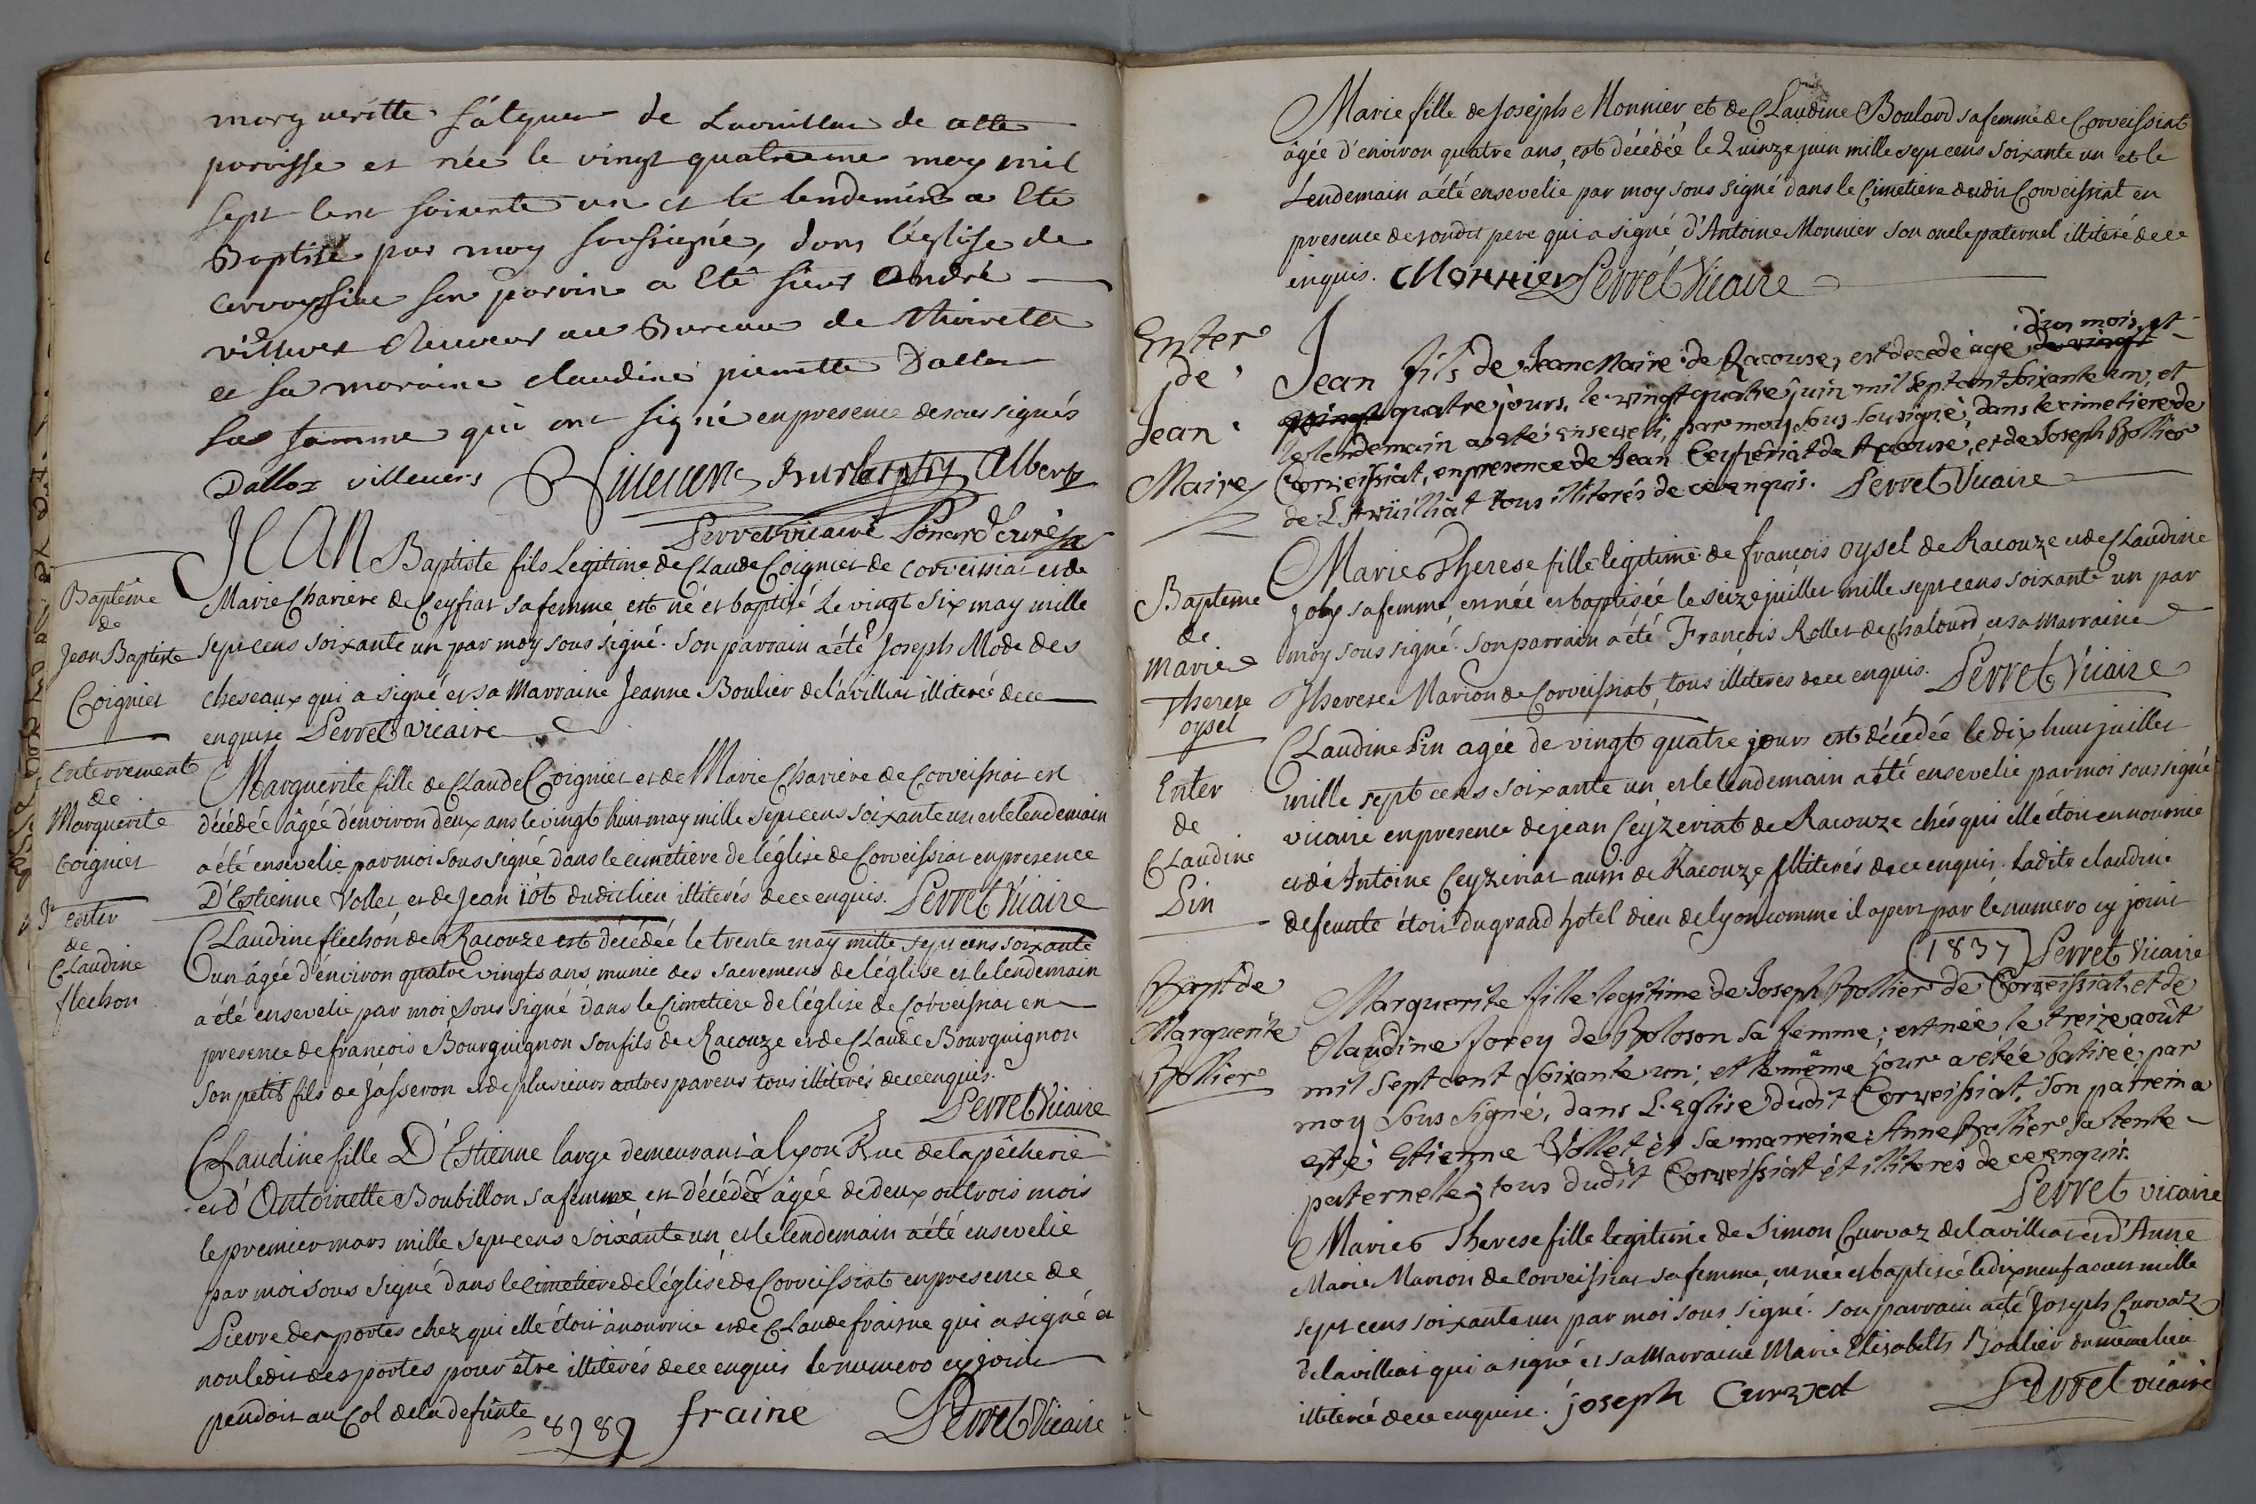 margueritte de Lavillat de cette
paroisse et née le vingt quatrieme may mil
sept cent soixante un et le lendemain a Eté
Baptisé par moy soussigné, dans l'église de
corveyssiat son parrin a Eté sieur André
villevers Receveur au Bureau de thoirette
et sa maraine claudine pierrette Dalloz
sa famme qui ont signé en presence des sous signés
Dalloz villevers Villevers Albert
Perret vicaire Ponard curé
JEAN Baptiste fils Legitime de CLaude Coignier de corveissiat et de
Marie Chariere de Ceyfiat sa femme est né et baptisé Le vingt six may mille
sept cens soixante un par moy sous signé. Son parrain a été Joseph Mode des
cheseaux qui a signé et sa Marraine Jeanne Boulier de lavilliat illiterée de ce
enquise Perret vicaire
Baptême
de
Jean Baptiste
Coignier
Enterrement
de
Marguerite
Coignier
Marguerite fille de CLaude Coignier et de Marie Chariere de Corveissiat est
décédée âgée d'environ deux ans le vingt huit may mille sept cens soixante un et le lendemain
a été ensevelie par moi sous signé dans le cimetiere de léglise de Corveissiat en presence
D'Estienne Vollet et de Jean iôt dudit lieu illiterés de ce enquis. Perret Vicaire
enter
de
CLaudine
flechon
CLaudine flechon de Racouze est décédée le trente may mille sept cens soixante
un âgée d'environ quatre vingts ans munie des sacremens de léglise et le lendemain
a été ensevelie par moi sous signé dans le Cimetiere de léglise de Corveissiat en
presence de francois Bourguignon son fils de Racouze et de CLaude Bourguignon
son petit fils de Jasseron et de plusieurs autres parens tous illiterés de ce enquis.
Perret Vicaire
CLaudine fille D'Estienne large demeurant à lyon Rue de la pêcherie
et d'Antoinette Boubillon sa femme est décédée âgée de deux ou trois mois
le premier mars mille sept cens soixante un et le lendemain a été ensevelie
par moi sous signé dans le cimetiere de léglise de Corveissiat en presence de
Pierre des portes chez qui elle étoit à nourrice et de CLaude fraisne qui a signé et
non ledit des portes pour être illiterés de ce enquis le numero cy joint
pendoit au Col de la defunte 8989 fraine Perret Vicaire
Marie fille de Joseph Monnier et de CLaudine Boulard sa femme de Corveissiat
âgée d'environ quatre ans, est décédée le Quinze juin mille sept cens soixante un et le
Lendemain a été ensevelie par moy sous signé dans le Cimetiere dudit Corveissiat en
presence de son dit pere qui a signé d'Antoine Monnier son oncle paternel illiteré de ce
enquis. Monnier Perret Vicaire
Enter
de
Jean
Maire
d'un mois et
Jean fils de Jean Maire de Racouse, est decedé agé de vingt
vingt quatre jours, le vingt quatre juin mil sept cent soixante un, et
le lendemain a eté enseveli, par moy sous sousigné, dans le cimetiere de
Corveissiat, en presence de Jean Ceyseriat de Racouse, et de Joseph Bollier
de Lavüilliat tous illiterés de ce enquis. Perret Vicaire
Bapteme
de
Marie
Therese
oysel
Marie Therese fille legitime de françois oysel de Racouze et de CLaudine
Joly sa femme, est née et baptisée le seize juillet mille sept cens soixante un par
moy sous signé. Son parrain a été François Rollet de Chalourd et sa Marraine
Therese Marion de Corveissiat, tous illiterés de ce enquis. Perret Vicaire
Enter
de
CLaudine
Pin
CLaudine Pin agée de vingt quatre jours est décédée le dix huit juillet
mille sept cens soixante un et le lendemain a été ensevelie par moi sous signé
vicaire en presence de jean Ceyzeriat de Racouze chés qui elle étoit en nourrice
et de Antoine Ceyzeriat aussi de Racouze illiterés de ce enquis. Ladite claudine
defeunte étoit du grand hotel dieu de lyon comme il apert par le numero cy joint
1837 Perret Vicaire
Bapt de
Marguerite
Bollier
Marguerite fille legitime de Joseph Bollier de Corveissiat, et de
Claudine forey de Boloson sa femme; est née le treize août
mil sept cent soixante un; et le même jour a étée batisée par
moy sous signé, dans L'Eglise dudit Corveissiat, son parrein a
esté Etienne Vollet et sa marreine Anne Bollier sa tente
paternelle; tous dudit Corveissiat et illiterés de ce enquis.
Perret vicaire
Marie Therese fille legitime de Simon Curvaz de lavilliat et d'Anne
Marie Marion de Corveissiat sa femme, est née et baptisée le dix neuf aoust mille
sept cens soixante un par moi sous signé. son parrain a été Joseph Curvaz
de lavilliat qui a signé et sa Marraine Marie Elisabeth Boulier du même lieu
illiterée de ce enquise. joseph Curvad Perret vicaire